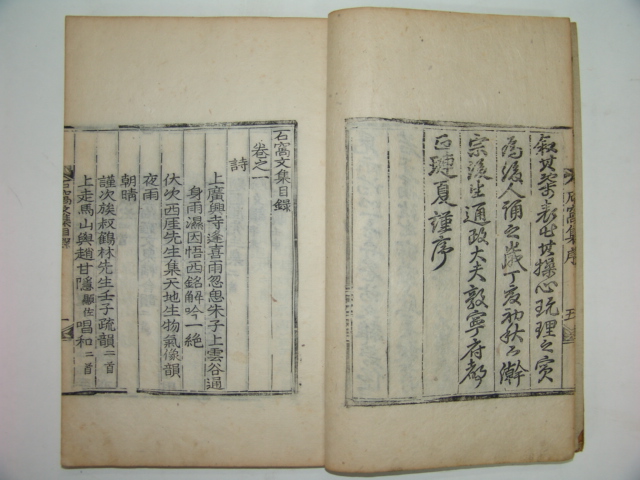 石窩集序 五
其 表出其操心玩理之實
爲後人誦之歲丁亥初秋下澣
宗後生通政大夫敦寧府都
正璉夏謹序
石窩文集目錄
卷之一
詩
上廣興寺逢喜雨忽思朱子上雲谷過
身雨濕因悟西銘解吟一絶
伏次西厓先生集天地生物氣像韻
夜雨
朝晴
謹次族叔鶴林先生壬子疏韻 二首
上走馬山與趙甘隱 顯佐 唱和 二首
石窩文集目錄 一